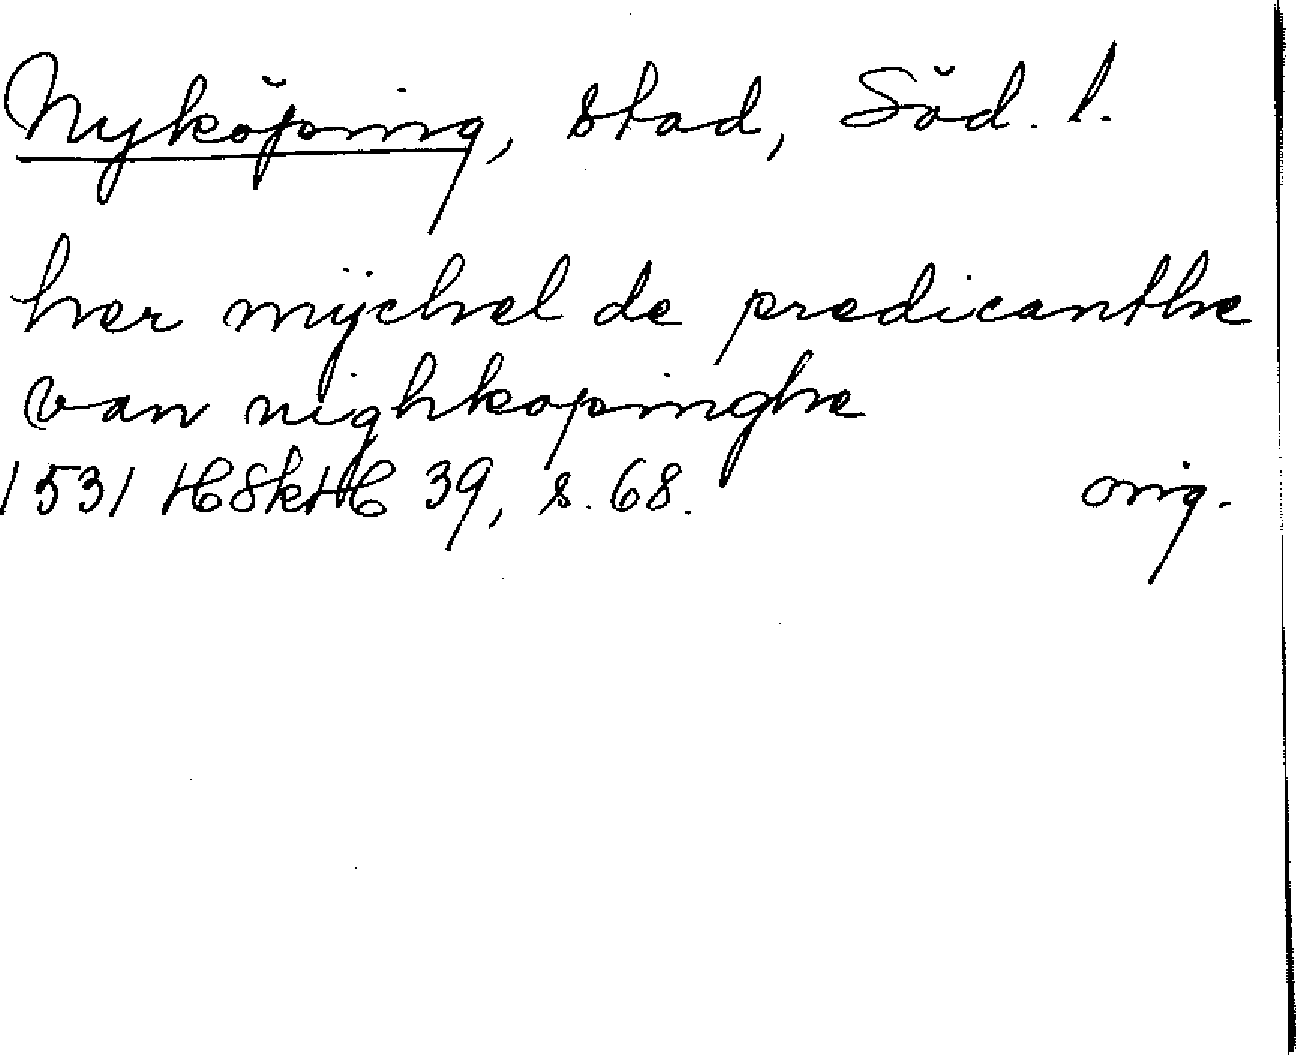 Nyköping, stad, Söd. l.
her mÿchel de predicanthe
van nighkopinghe
1531 HSkHC 39, s. 68. orig.